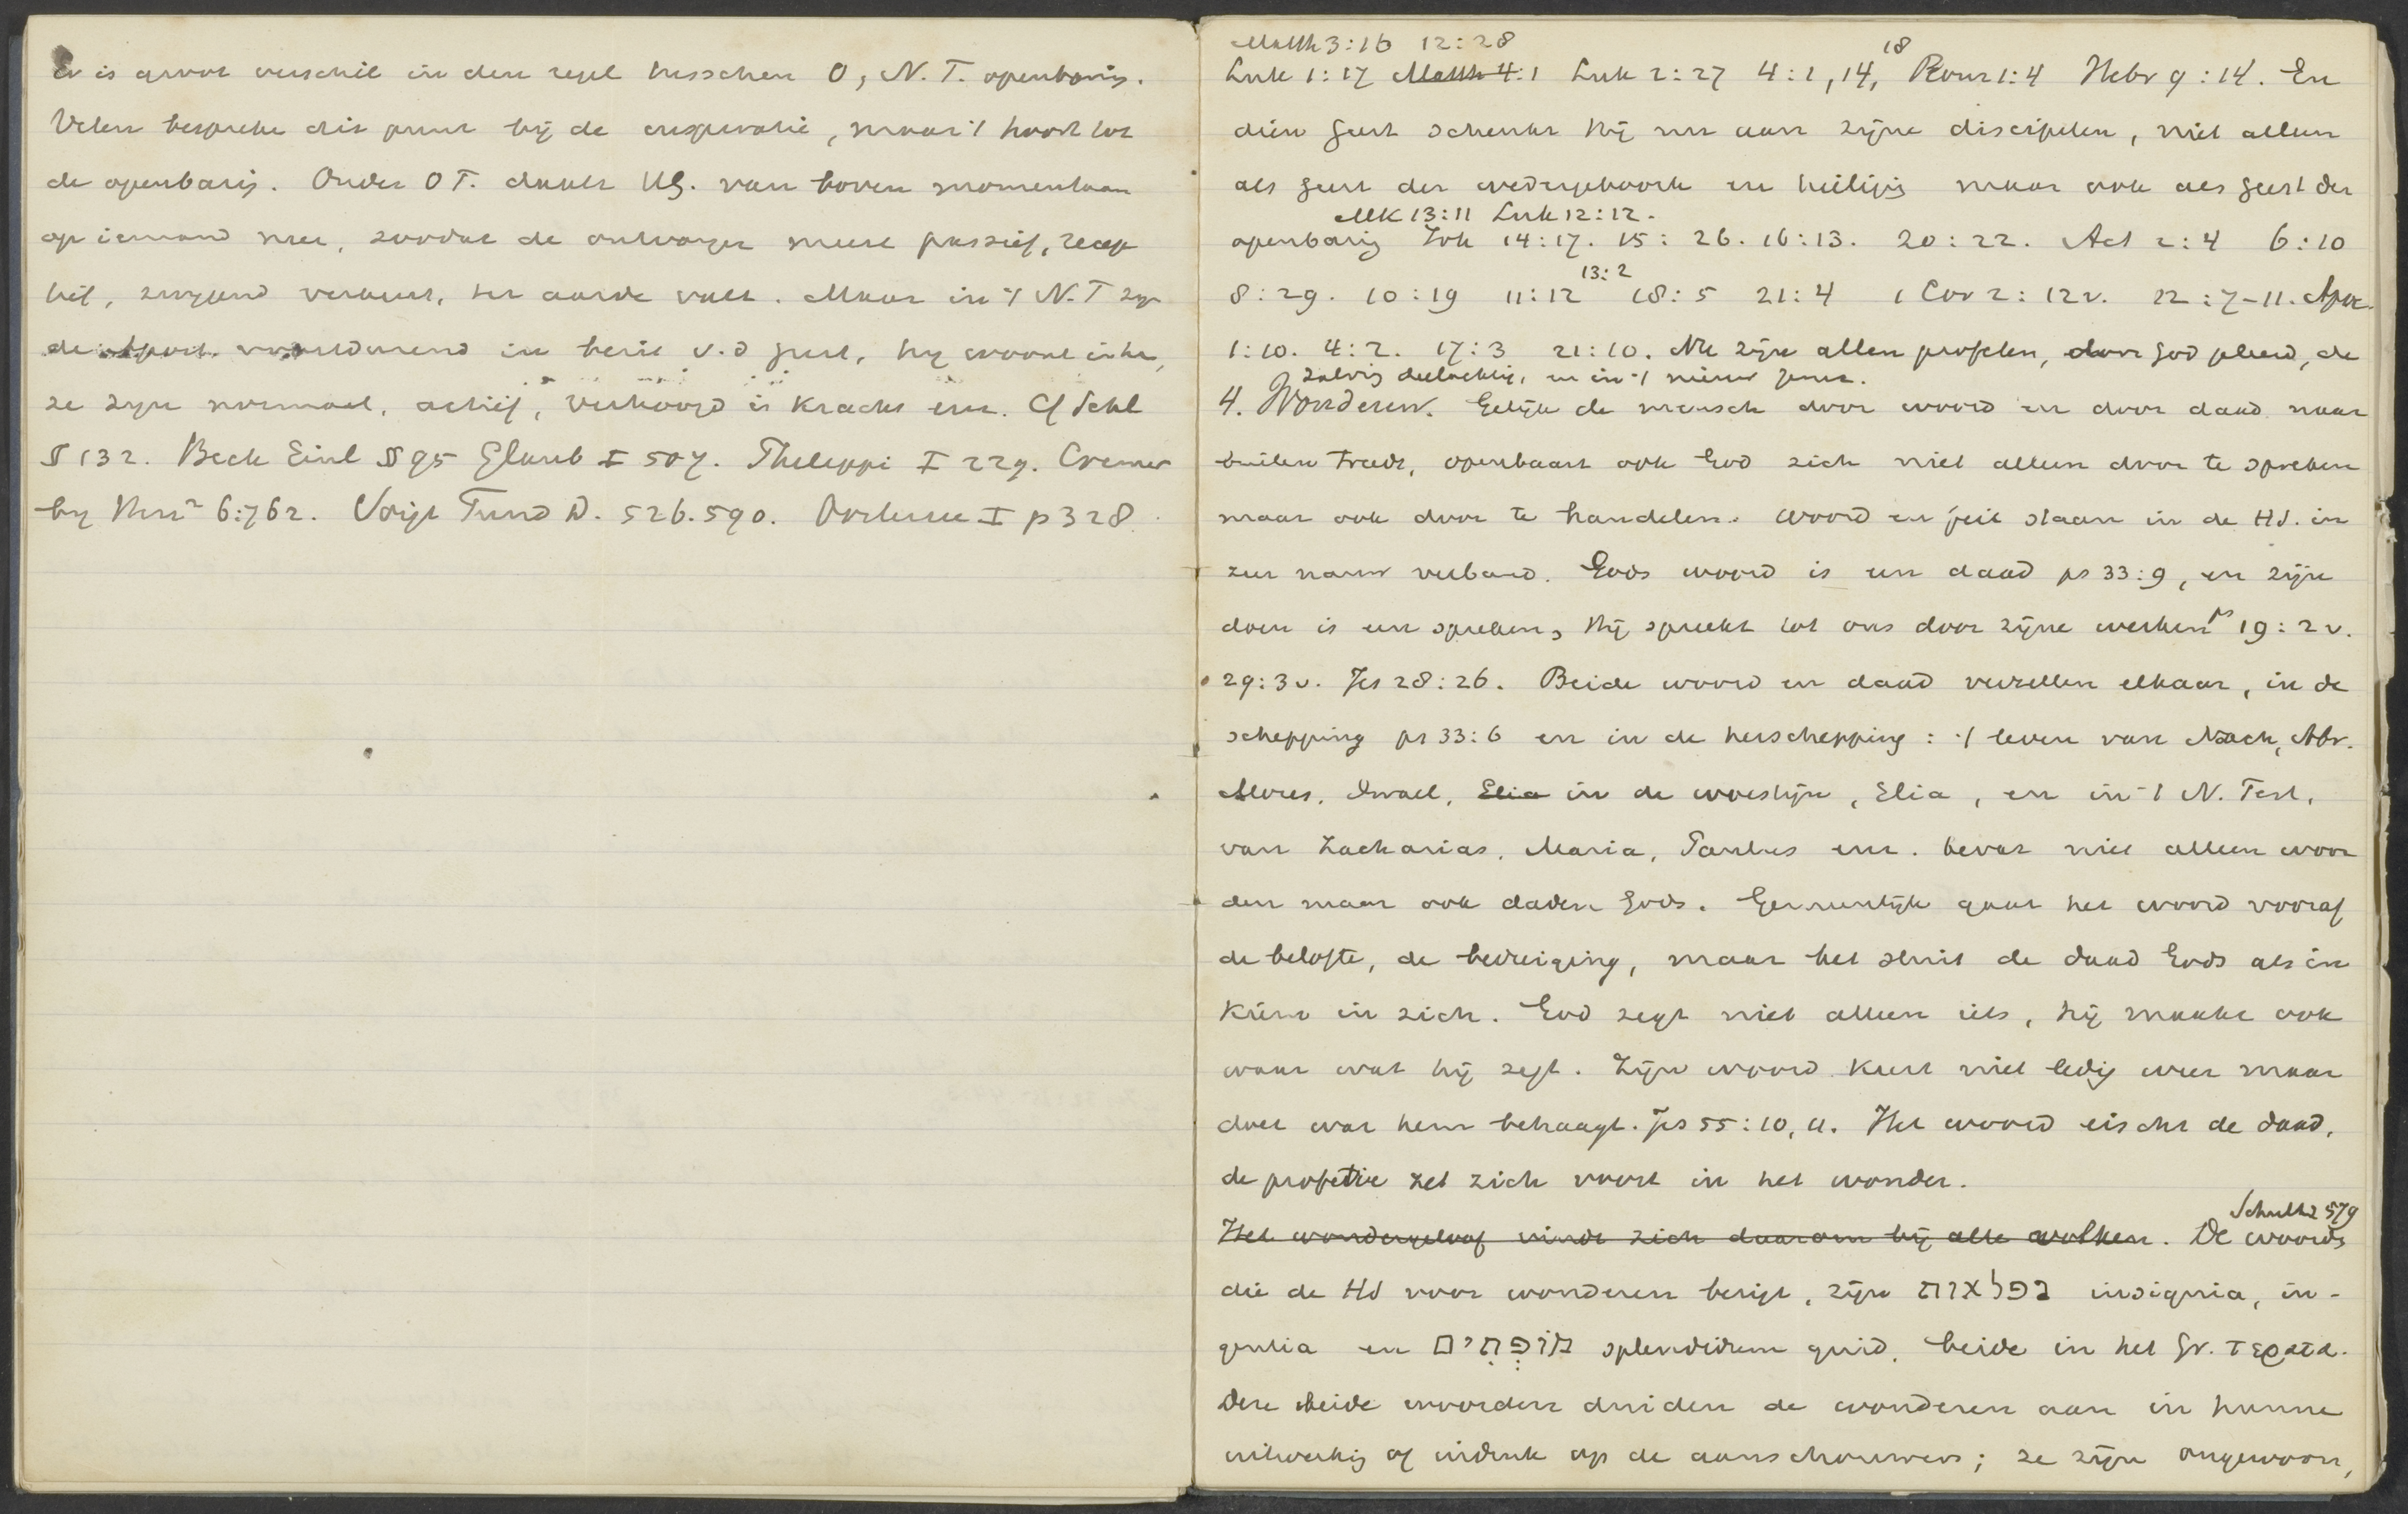 Er is groot verschil in den regel tusschen O, N. T. openbarig.
Velen bespreke dit punt bij de inspiratie, maar 't hoort tot
de openbarig. Onder O T. daalt HG. van boven momentaan
op iemand neer, zoodat de ontvanger meest passief, recep
tief, zwygend verkeert, ter aarde valt. Maar in 't N. T zyn
de Apost. voortdurend in bezit v. d geest, hy woont in hen,
ze zyn normaal, actief, verhoogd in kracht enz. Cf Schl
§ 132. Beck Einl § 95 Glaub I 507. Philippi I 229. Cremer
by Herz² 6:762. Voigt Fund D. 526. 590. I p 328.
Matth 3:16 12:28
Luk 1:17 Matth 4:1 Luk 2:27 4:1, 14, 18 Rom 1:4 Hebr 9:14. En
dien geest schenkt hij nu aan zijne discipelen, niet alleen
als geest der wedergeboorte en heiligig maar ook als geest der
Mk 13:11 Luk 12:12.
openbarig Joh 14:17. 15:26. 16:13. 20:22. Act 2:4 6:10
8:29. 10:19 11:12 13:2 18:5 21:4 1 Cor 2:12v. 12:7-11. Apoc.
1:10. 4:2. 17:3 21:10. Nu zijn allen profeten, door God geleerd, de
zalvig deelachtig, en in 't
4. Wonderen. Gelijk de mensch door woord en door daad naar
buiten treedt, openbaart ook God zich niet alleen door te spreken
maar ook door te handelen. Woord en feit staan in de HS. in
zeer nauw verband. Gods woord is een daad ps 33:9, en zijn
doen is een spreken, Hij spreekt tot ons door zijne werken ps 19:2v.
29:3v. Jes 28:26. Beide woord en daad verzellen elkaar, in de
schepping ps 33:6 en in de herschepping: 't leven van Noach, Abr.
Mozes, Israel, Elia in de woestijn, Elia, en in 't N. Test.
van Zacharias, Maria, Paulus enz. bevat niet alleen woor
den maar ook daden Gods. Gemeenlijk gaat het woord vooraf
de belofte, de bedreiging, maar het sluit de daad Gods als in
kiem in zich. God zegt niet alleen iets, hij maakt ook
waar wat hij zegt. Zijn woord keert niet ledig weer maar
doet wat hem behaagt. Jes 55:10, 11. Het woord eischt de daad,
de profetie zet zich voort in het wonder.
Schultz 579
Het wondergeloof vindt zich daarom bij alle volken. De woorde
die de HS voor wonderen bezigt, zijn נפלאות insignia, in-
gentia en מופתים splendidum quid, beide in het Gr. τερατα.
Deze beide woorden duiden de wonderen aan in hunne
uitwerkig of indruk op de aanschouwers; ze zijn ongewoon,